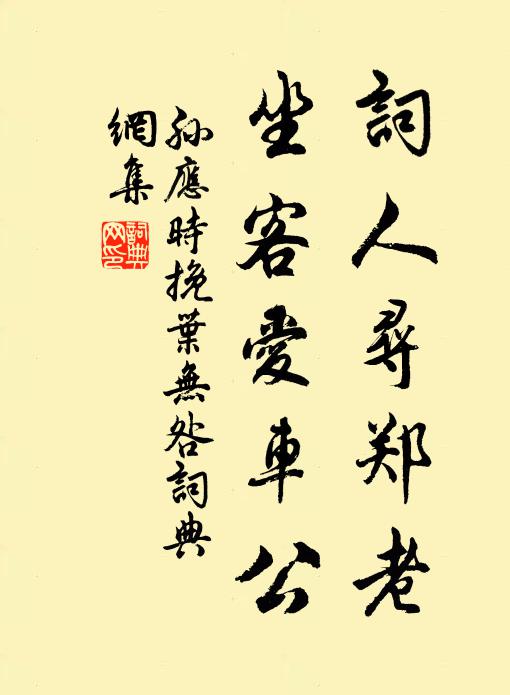 詞人尋郑老
坐客愛車公
孙應時挽葉無咎詞典
網集
詞典
网印